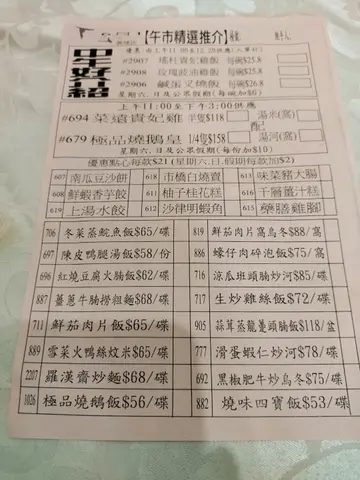 【午市精選推介】
中午好介紹
#2907 瑤柱貴妃雞飯 每碗$25.8
#2908 玫瑰波油雞飯 每碗$25.8
#2906 鹹蛋叉燒飯 每碗$26.8
星期六、日及公眾假期(每碗加$5)
上午11:00至下午3:00供應
#694 菜遠貴妃雞 半隻$118
湯米(窩)
配
#679 極品燒鵝皇 1/4隻$158
湯河(窩)
星期六、日及公眾假期(每份加$10)
優惠點心每款$21(星期六.日.假期每款加$2)
607 南瓜豆沙餅 618 市橋白燒賣 613 味菜豬大腸
608 鮮蝦香芋餃 611 柚子桂花糕 616 千層薑汁糕
619 上湯水餃 612 沙律明蝦角 615 藥膳雞腳
706 冬菜蒸鯇魚飯$65/碟 819 鮮茄肉片窩烏冬$88/窩
697 陳皮鴨腿湯飯$58/份 886 蠔仔肉碎泡飯$75/窩
696 紅燒豆腐火腩飯$62/碟 716 涼瓜班頭腩炒河$85/碟
887 薑蔥牛腩撈粗麵$68/碟 717 生炒雞絲飯$72/碟
711 鮮茄肉片飯$65/碟 905 蒜茸蒸龍躉頭腩飯$118/盆
889 雪菜火鴨絲炆米$65/碟 777 滑蛋蝦仁炒河$78/碟
2207 羅漢齋炒麵$68/碟 692 黑椒肥牛炒烏冬$75/碟
1026 極品燒鵝飯$56/碟 882 燒味四寶飯$53/碟